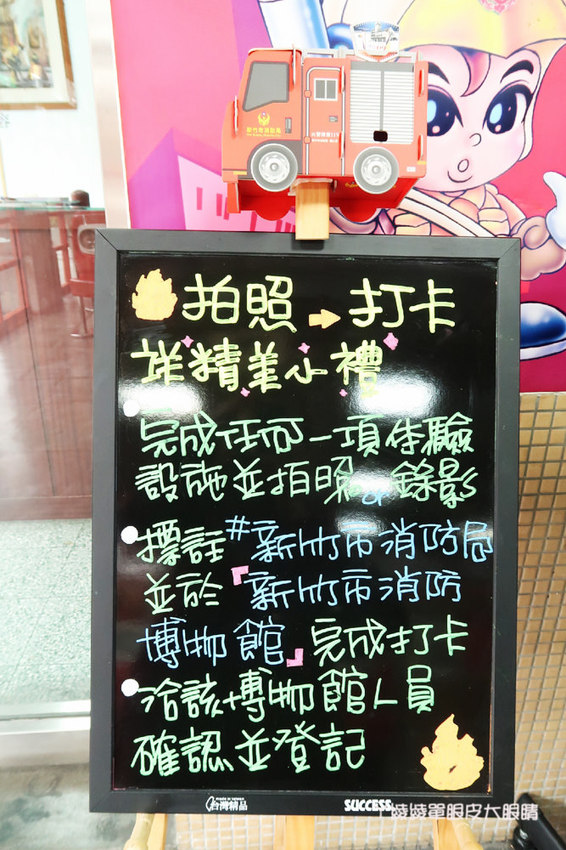 新竹市消防局
拍照→打卡
送精美小禮
完成任何一項体驗
設施並拍照or錄影
標註#新竹市消防局
並於「新竹市消防
博物館」完成打卡
洽該博物館人員
確認並登記
made in taiwan
台灣精品
SUCCESS
陵陵單眼皮大眼睛